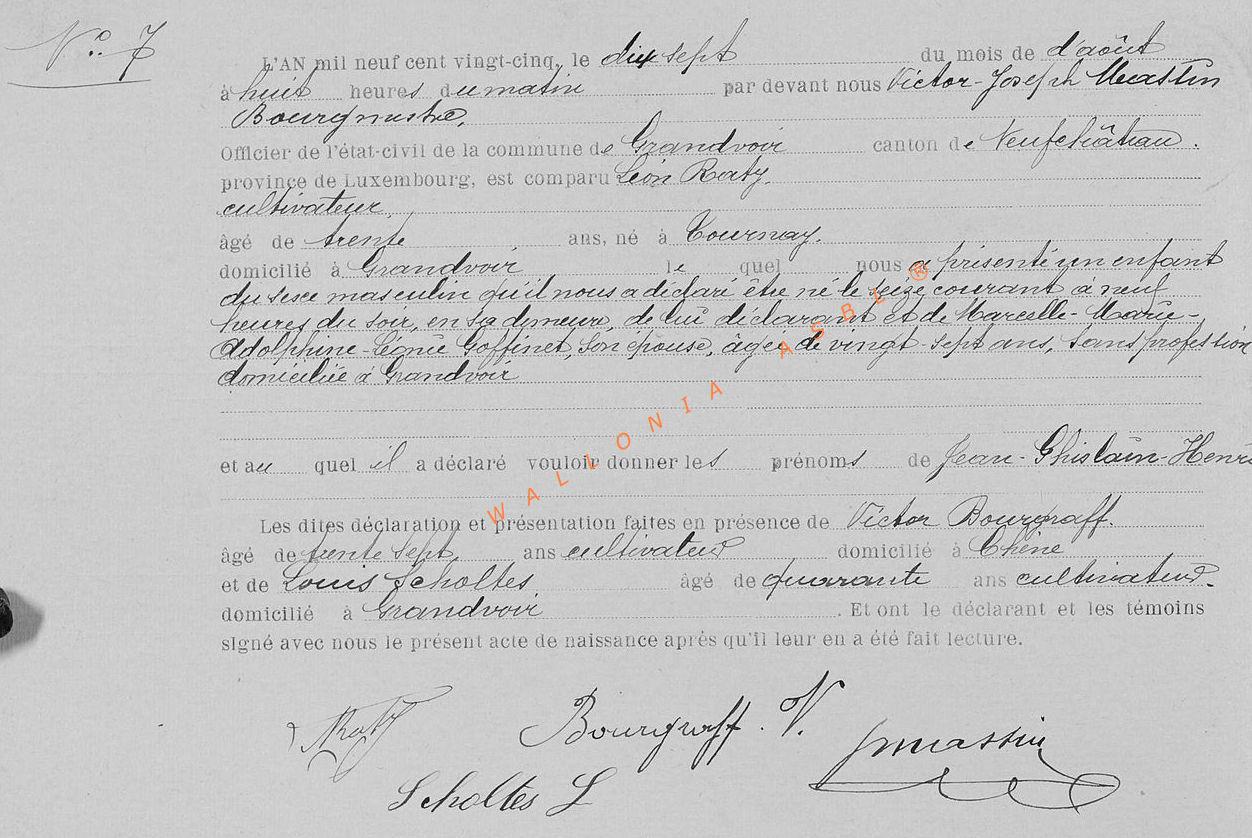 N° 7
L'AN mil neuf cent vingt-cinq, le dix sept du mois de d'août
à huit heures du matin par devant nous Victor-Joseph Massin
Bourgmestre,
Officier de l'état-civil de la commune de Grandvoir canton de Neufchâteau.
province de Luxembourg, est comparu Léon Raty,
cultivateur,
âgé de trente ans, né à Tournay,
domicilié à Grandvoir lequel nous a présenté un enfant
du sexe masculin qu'il nous a déclaré être né le seize courant à neuf
heures du soir, en sa demeure, de lui déclarant et de Marcelle-Marie-
Adolphine-Léonie Goffinet, son épouse, âgée de vingt-sept ans, sans profession
domiciliée à Grandvoir
et auquel il a déclaré vouloir donner les prénoms de Jean-Ghislain-Henri
Les dites déclaration et présentation faites en présence de Victor Bourgraff.
âgé de trente sept ans cultivateur domicilié à Chêne
et de Louis Scholtes âgé de quarante ans cultivateur.
domicilié à Grandvoir. Et ont le déclarant et les témoins
signé avec nous le présent acte de naissance après qu'il leur en a été fait lecture.
Raty Bourgraff. V. Jmassin
Scholtes L
WALLONIA ASBL ®